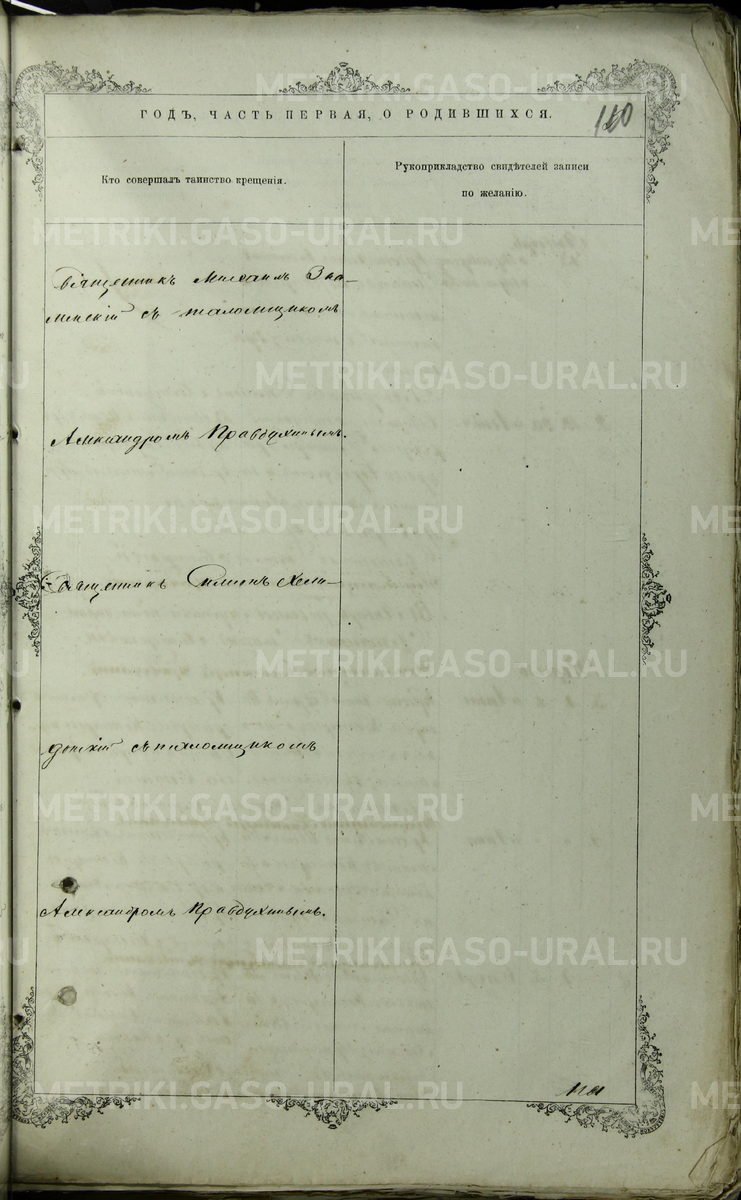 METRIKI.GASO-URAL.RU
ГОДЪ, ЧАСТЬ ПЕРВАЯ, О РОДИВШИХСЯ.
Кто совершалъ таинство крещенія.
Рукоприкладство свидѣтелей записи
по желанію.
Священникъ Михаилъ Зна-
менскій съ псаломщикомъ
Александромъ Правдухинымъ.
Священникъ Симеонъ Хели-
донскій съ псаломщикомъ
Александромъ Правдухинымъ.